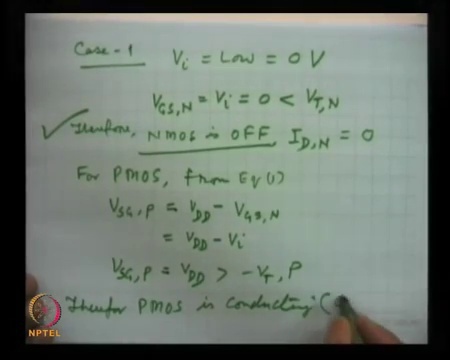 Case-1 Vi = Low = 0 V
VGS,N = Vi = 0 < VT,N
Therefore, NMOS is OFF, ID,N = 0
For PMOS, from Eq(1)
VSG,P = VDD - VGS,N
= VDD - Vi
VSG,P = VDD > -VT,P
Therefor PMOS is conducting (
NPTEL